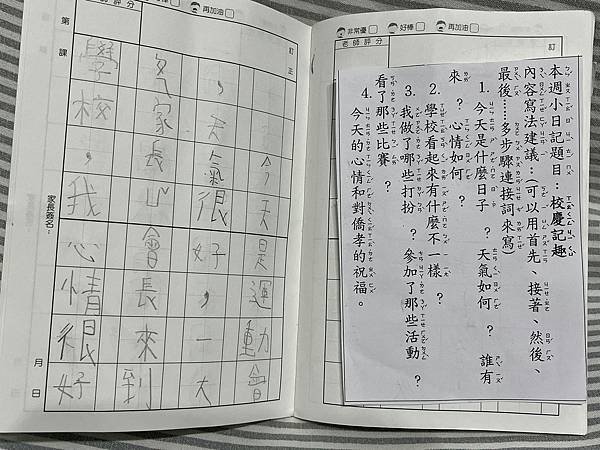 非常優 好棒 再加油
老師評分
訂
本週小日記題目：校慶記趣
內容寫法建議：可以用首先、接著、然後、
最後……多步驟連接詞來寫）
1.今天是什麼日子？天氣如何？誰有
來？心情如何？
2.學校看起來有什麼不一樣？
3.我做了哪些打扮？參加了那些活動？
看了那些比賽？
4.今天的心情和對僑孝的祝福。
好棒 再加油
老師評分
訂正
今天是運動會
，天氣很好，一大
家長會長來到
學校，我心情很好
第 課
家長簽名：
月 日